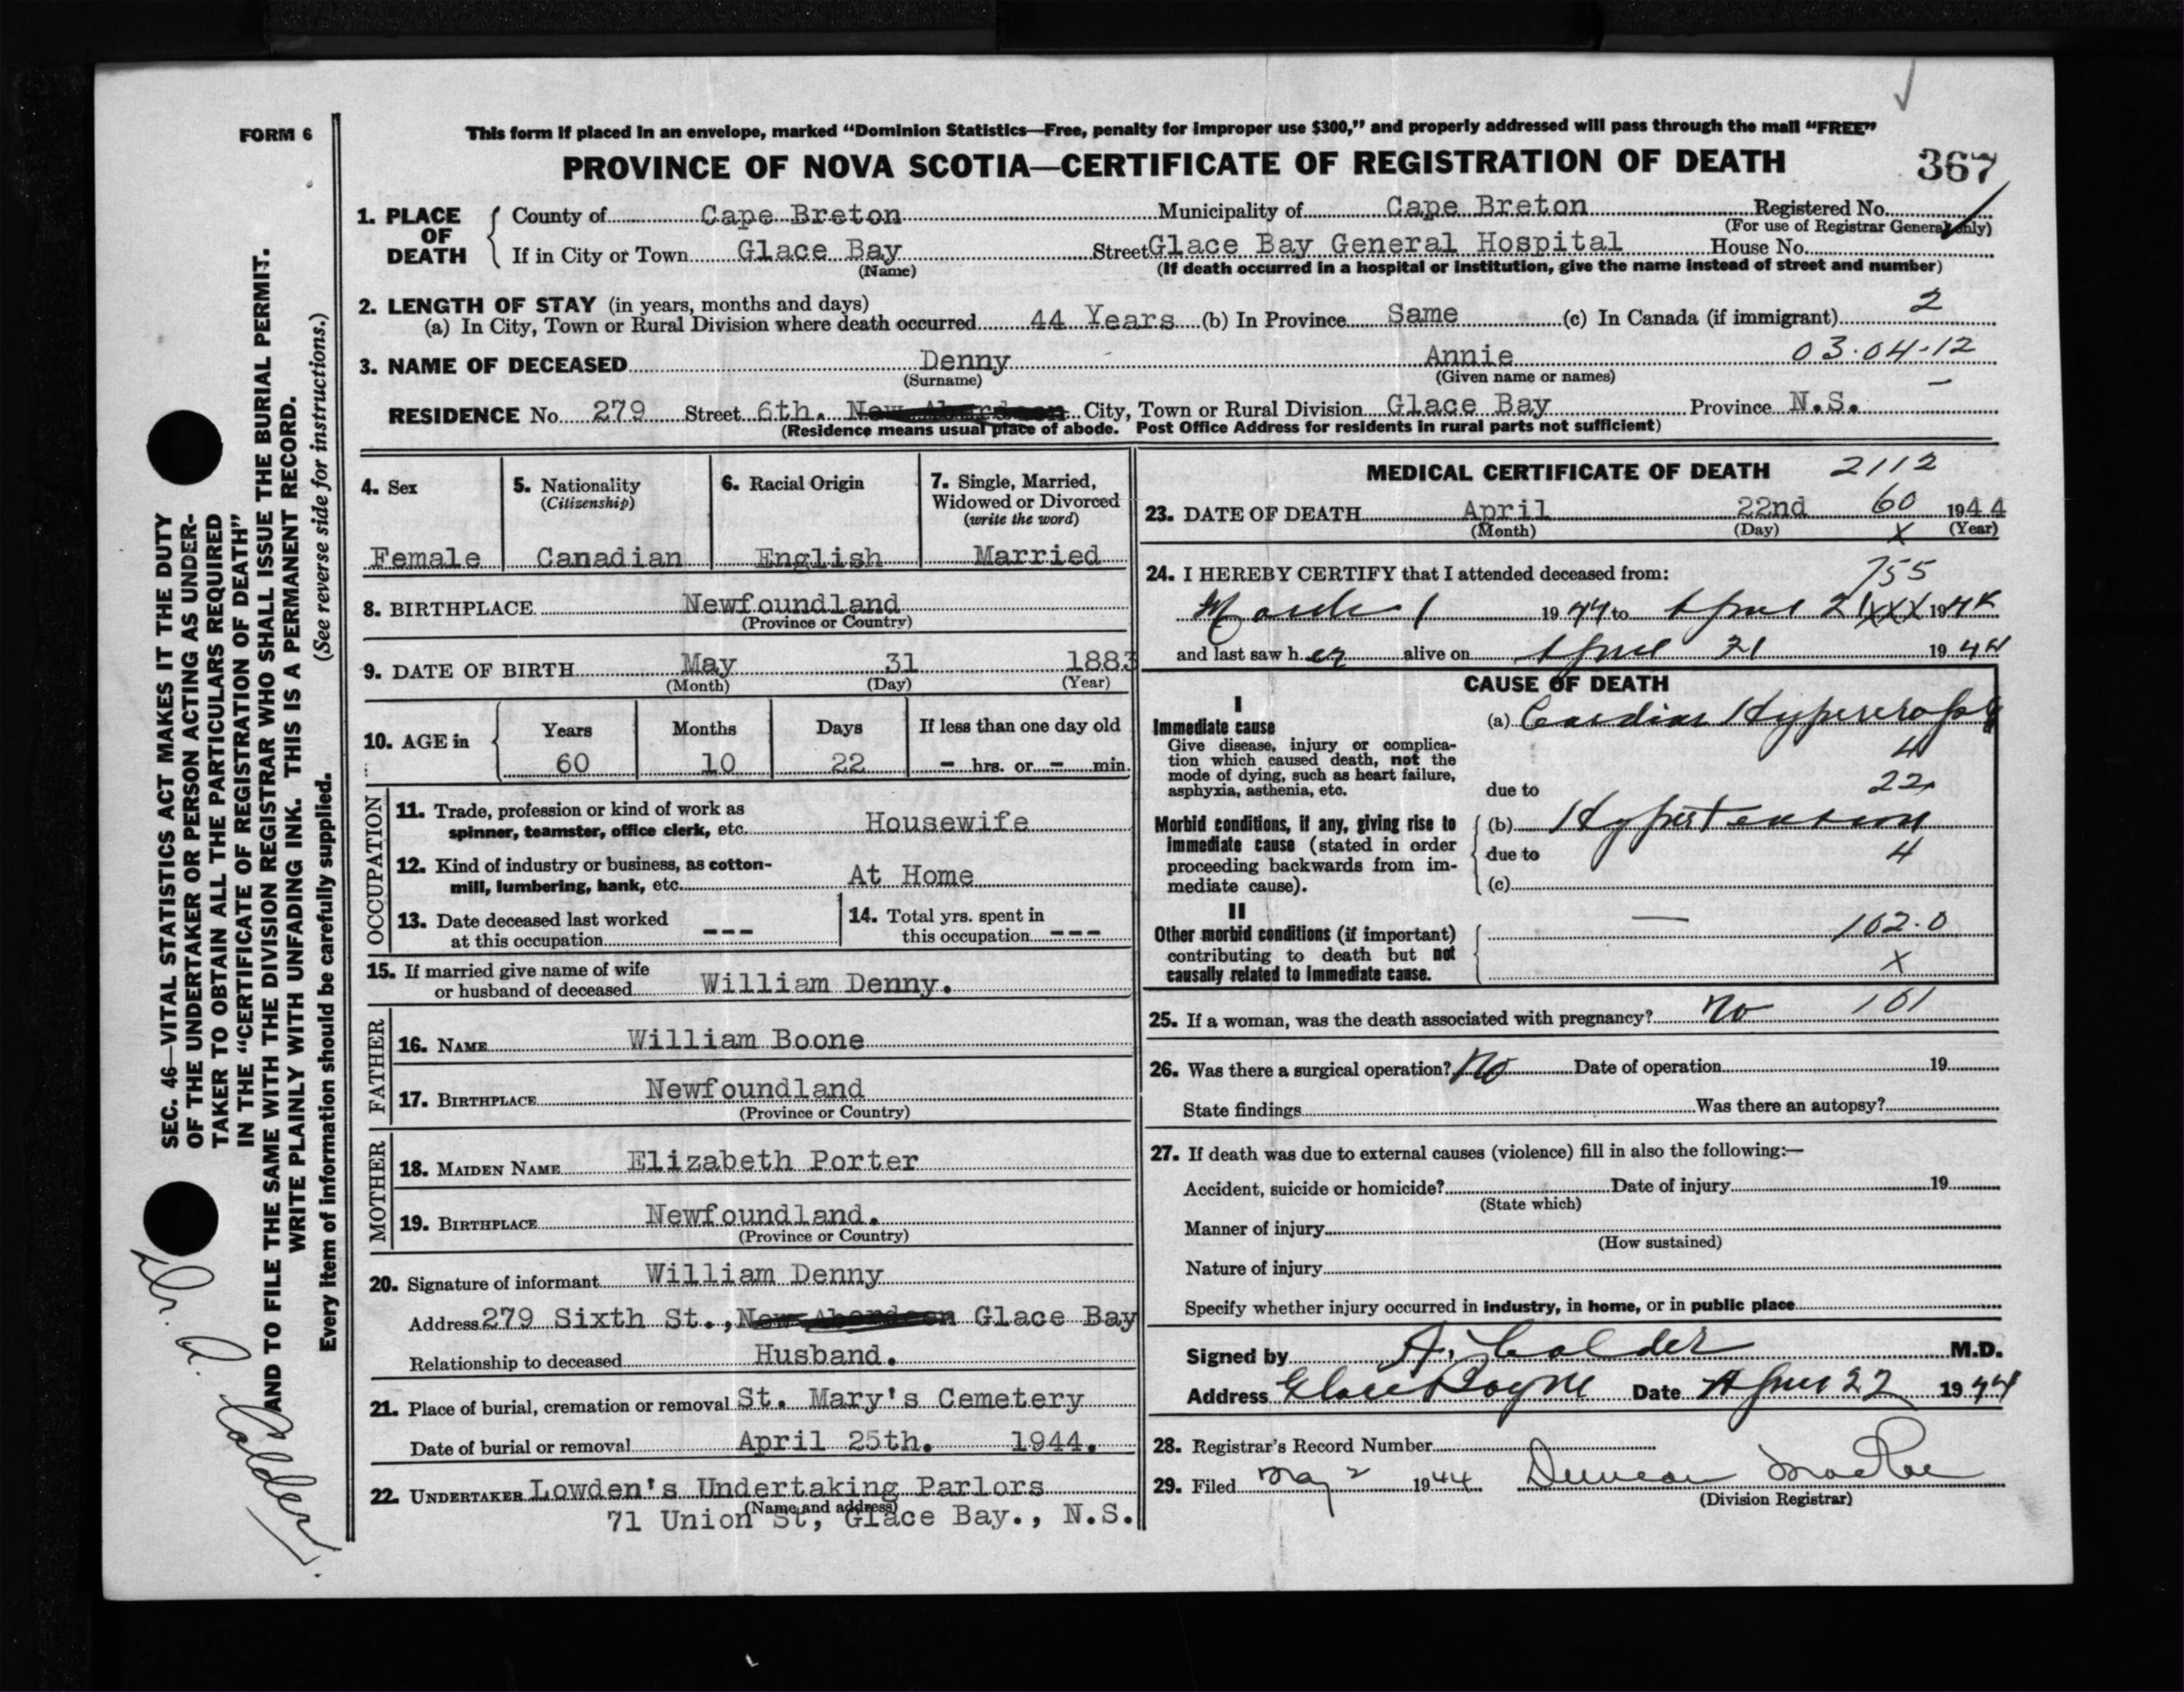 FORM 6
This form if placed in an envelope, marked “Dominion Statistics—Free, penalty for improper use $300,” and properly addressed will pass through the mail “FREE”
PROVINCE OF NOVA SCOTIA—CERTIFICATE OF REGISTRATION OF DEATH 367
1. PLACE OF DEATH County of Cape Breton Municipality of Cape Breton Registered No.
(For use of Registrar General only)
If in City or Town Glace Bay Street Glace Bay General Hospital House No.
(Name) (If death occurred in a hospital or institution, give the name instead of street and number)
2. LENGTH OF STAY (in years, months and days) 2
(a) In City, Town or Rural Division where death occurred 44 Years (b) In Province Same (c) In Canada (if immigrant)
3. NAME OF DECEASED Denny Annie 03.04-12
(Surname) (Given name or names)
RESIDENCE No. 279 Street 6th. New Aberdeen City, Town or Rural Division Glace Bay Province N.S.
(Residence means usual place of abode. Post Office Address for residents in rural parts not sufficient)
4. Sex
Female
5. Nationality
(Citizenship)
Canadian
6. Racial Origin
English
7. Single, Married,
Widowed or Divorced
(write the word)
Married
8. BIRTHPLACE Newfoundland
(Province or Country)
9. DATE OF BIRTH May 31 1883
(Month) (Day) (Year)
10. AGE in Years Months Days If less than one day old
60 10 22 – hrs. or – min.
OCCUPATION
11. Trade, profession or kind of work as
spinner, teamster, office clerk, etc. Housewife
12. Kind of industry or business, as cotton-
mill, lumbering, bank, etc. At Home
13. Date deceased last worked
at this occupation ---
14. Total yrs. spent in
this occupation ---
15. If married give name of wife
or husband of deceased William Denny.
FATHER
16. NAME William Boone
17. BIRTHPLACE Newfoundland
(Province or Country)
MOTHER
18. MAIDEN NAME Elizabeth Porter
19. BIRTHPLACE Newfoundland.
(Province or Country)
20. Signature of informant William Denny
Address 279 Sixth St., New Aberdeen Glace Bay
Relationship to deceased Husband.
21. Place of burial, cremation or removal St. Mary's Cemetery
Date of burial or removal April 25th. 1944.
22. UNDERTAKER Lowden's Undertaking Parlors
(Name and address)
71 Union St, Glace Bay., N.S.
MEDICAL CERTIFICATE OF DEATH 2112
23. DATE OF DEATH April 22nd 60 1944
(Month) (Day) X (Year)
24. I HEREBY CERTIFY that I attended deceased from: 755
March 1 1944 to April 21 XXX 1944
and last saw her alive on April 21 1944
CAUSE OF DEATH
I
Immediate cause
Give disease, injury or complica-
tion which caused death, not the
mode of dying, such as heart failure,
asphyxia, asthenia, etc.
(a) Cardiac Hypertrophy
4
22
due to
Morbid conditions, if any, giving rise to
immediate cause (stated in order
proceeding backwards from im-
mediate cause).
(b) Hypertension
due to 4
(c)
II
Other morbid conditions (if important)
contributing to death but not
causally related to immediate cause.
— 102.0
X
25. If a woman, was the death associated with pregnancy? No 101
26. Was there a surgical operation? No Date of operation 19
State findings Was there an autopsy?
27. If death was due to external causes (violence) fill in also the following:—
Accident, suicide or homicide? Date of injury 19
(State which)
Manner of injury
(How sustained)
Nature of injury
Specify whether injury occurred in industry, in home, or in public place
Signed by A. Calder M.D.
Address Glace Bay NS Date April 22 1944
28. Registrar's Record Number
29. Filed May 2 1944 Duncan MacRae
(Division Registrar)
SEC. 46—VITAL STATISTICS ACT MAKES IT THE DUTY
OF THE UNDERTAKER OR PERSON ACTING AS UNDER-
TAKER TO OBTAIN ALL THE PARTICULARS REQUIRED
IN THE “CERTIFICATE OF REGISTRATION OF DEATH”
AND TO FILE THE SAME WITH THE DIVISION REGISTRAR WHO SHALL ISSUE THE BURIAL PERMIT.
WRITE PLAINLY WITH UNFADING INK. THIS IS A PERMANENT RECORD.
Every item of information should be carefully supplied. (See reverse side for instructions.)
Dr. A. Calder